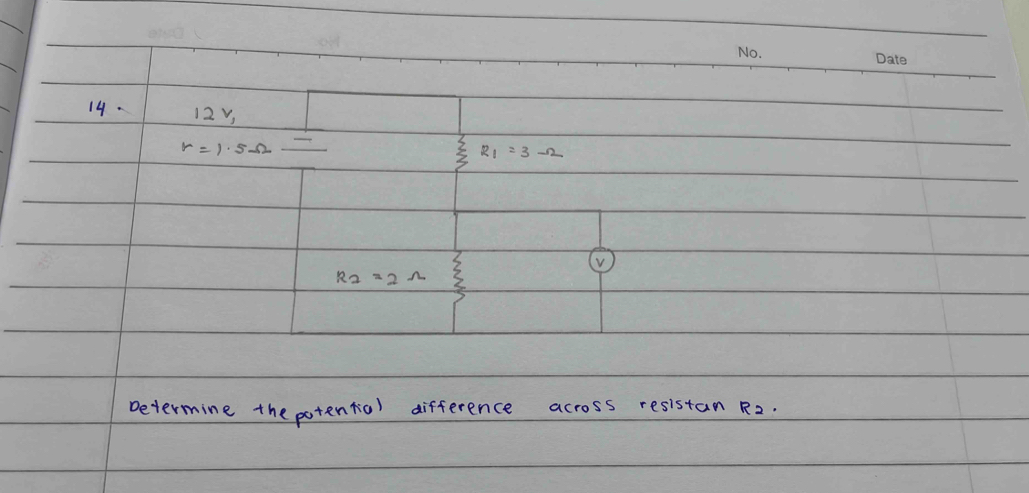 No. Date
14.
12 V,
r = 1.5 Ω
R1 = 3 Ω
V
R2 = 2 Ω
Determine the potential difference across resistan R2.